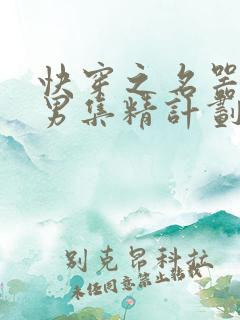 快穿之名器
男集精計劃
别克昂科拉
未任同意禁止轉載